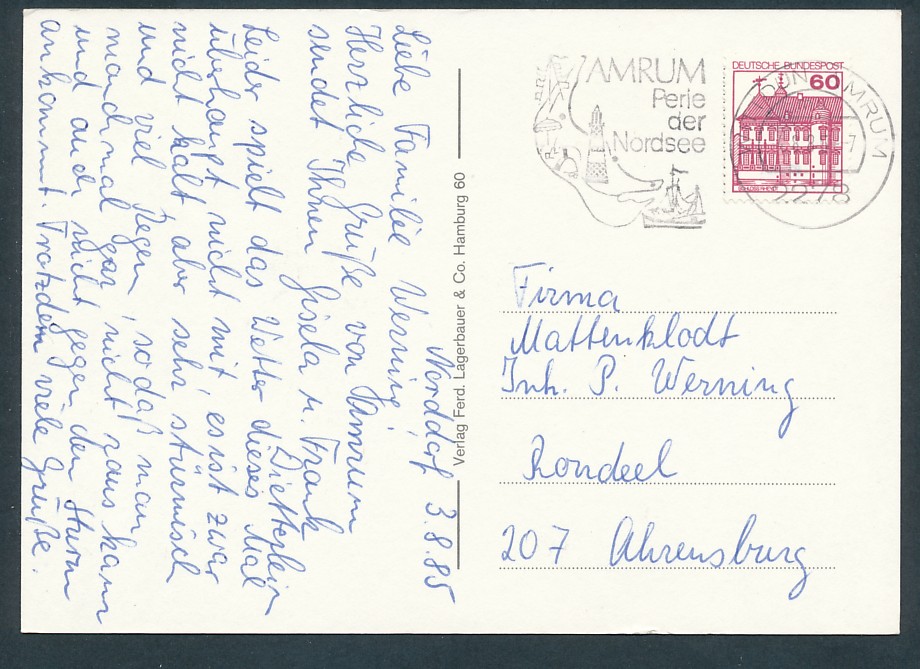 Norddorf 3.8.85
Liebe Familie Werning!
Herzliche Grüße von Amrum
sendet Ihnen Gisela u. Frank
Leider spielt das Wetter dieses Mal
überhaupt nicht mit, es ist zwar
nicht kalt aber sehr stürmisch
und viel Regen, sodaß man
manchmal gar nicht raus kann
und auch nicht gegen den Sturm
ankommt. Trotzdem viele Grüße.
Verlag Ferd. Lagerbauer & Co. Hamburg 60
AMRUM
Perle
der
Nordsee
DEUTSCHE BUNDESPOST
60
AMRUM
2278
Firma
Mattenklodt
Inh. P. Werning
Rondeel
207 Ahrensburg